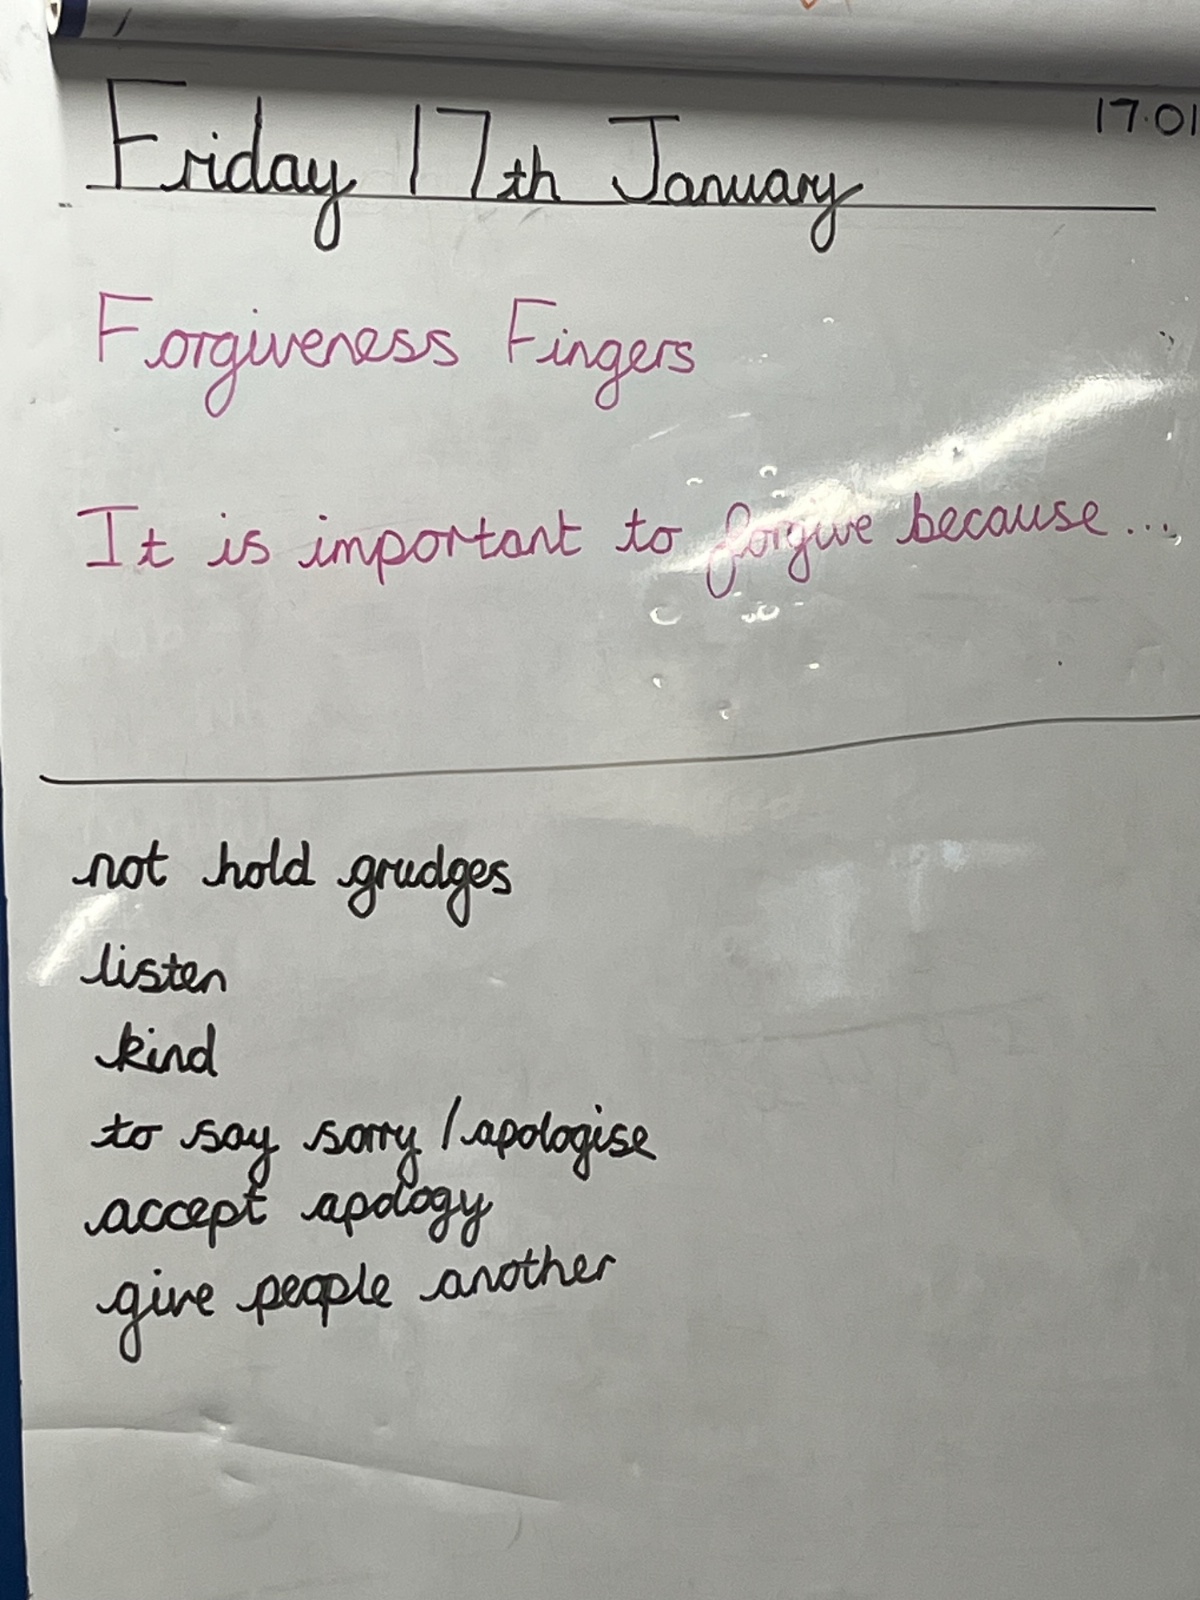 17.01
Friday 17th January
Forgiveness Fingers
It is important to forgive because...
not hold grudges
listen
kind
to say sorry / apologise
accept apology
give people another